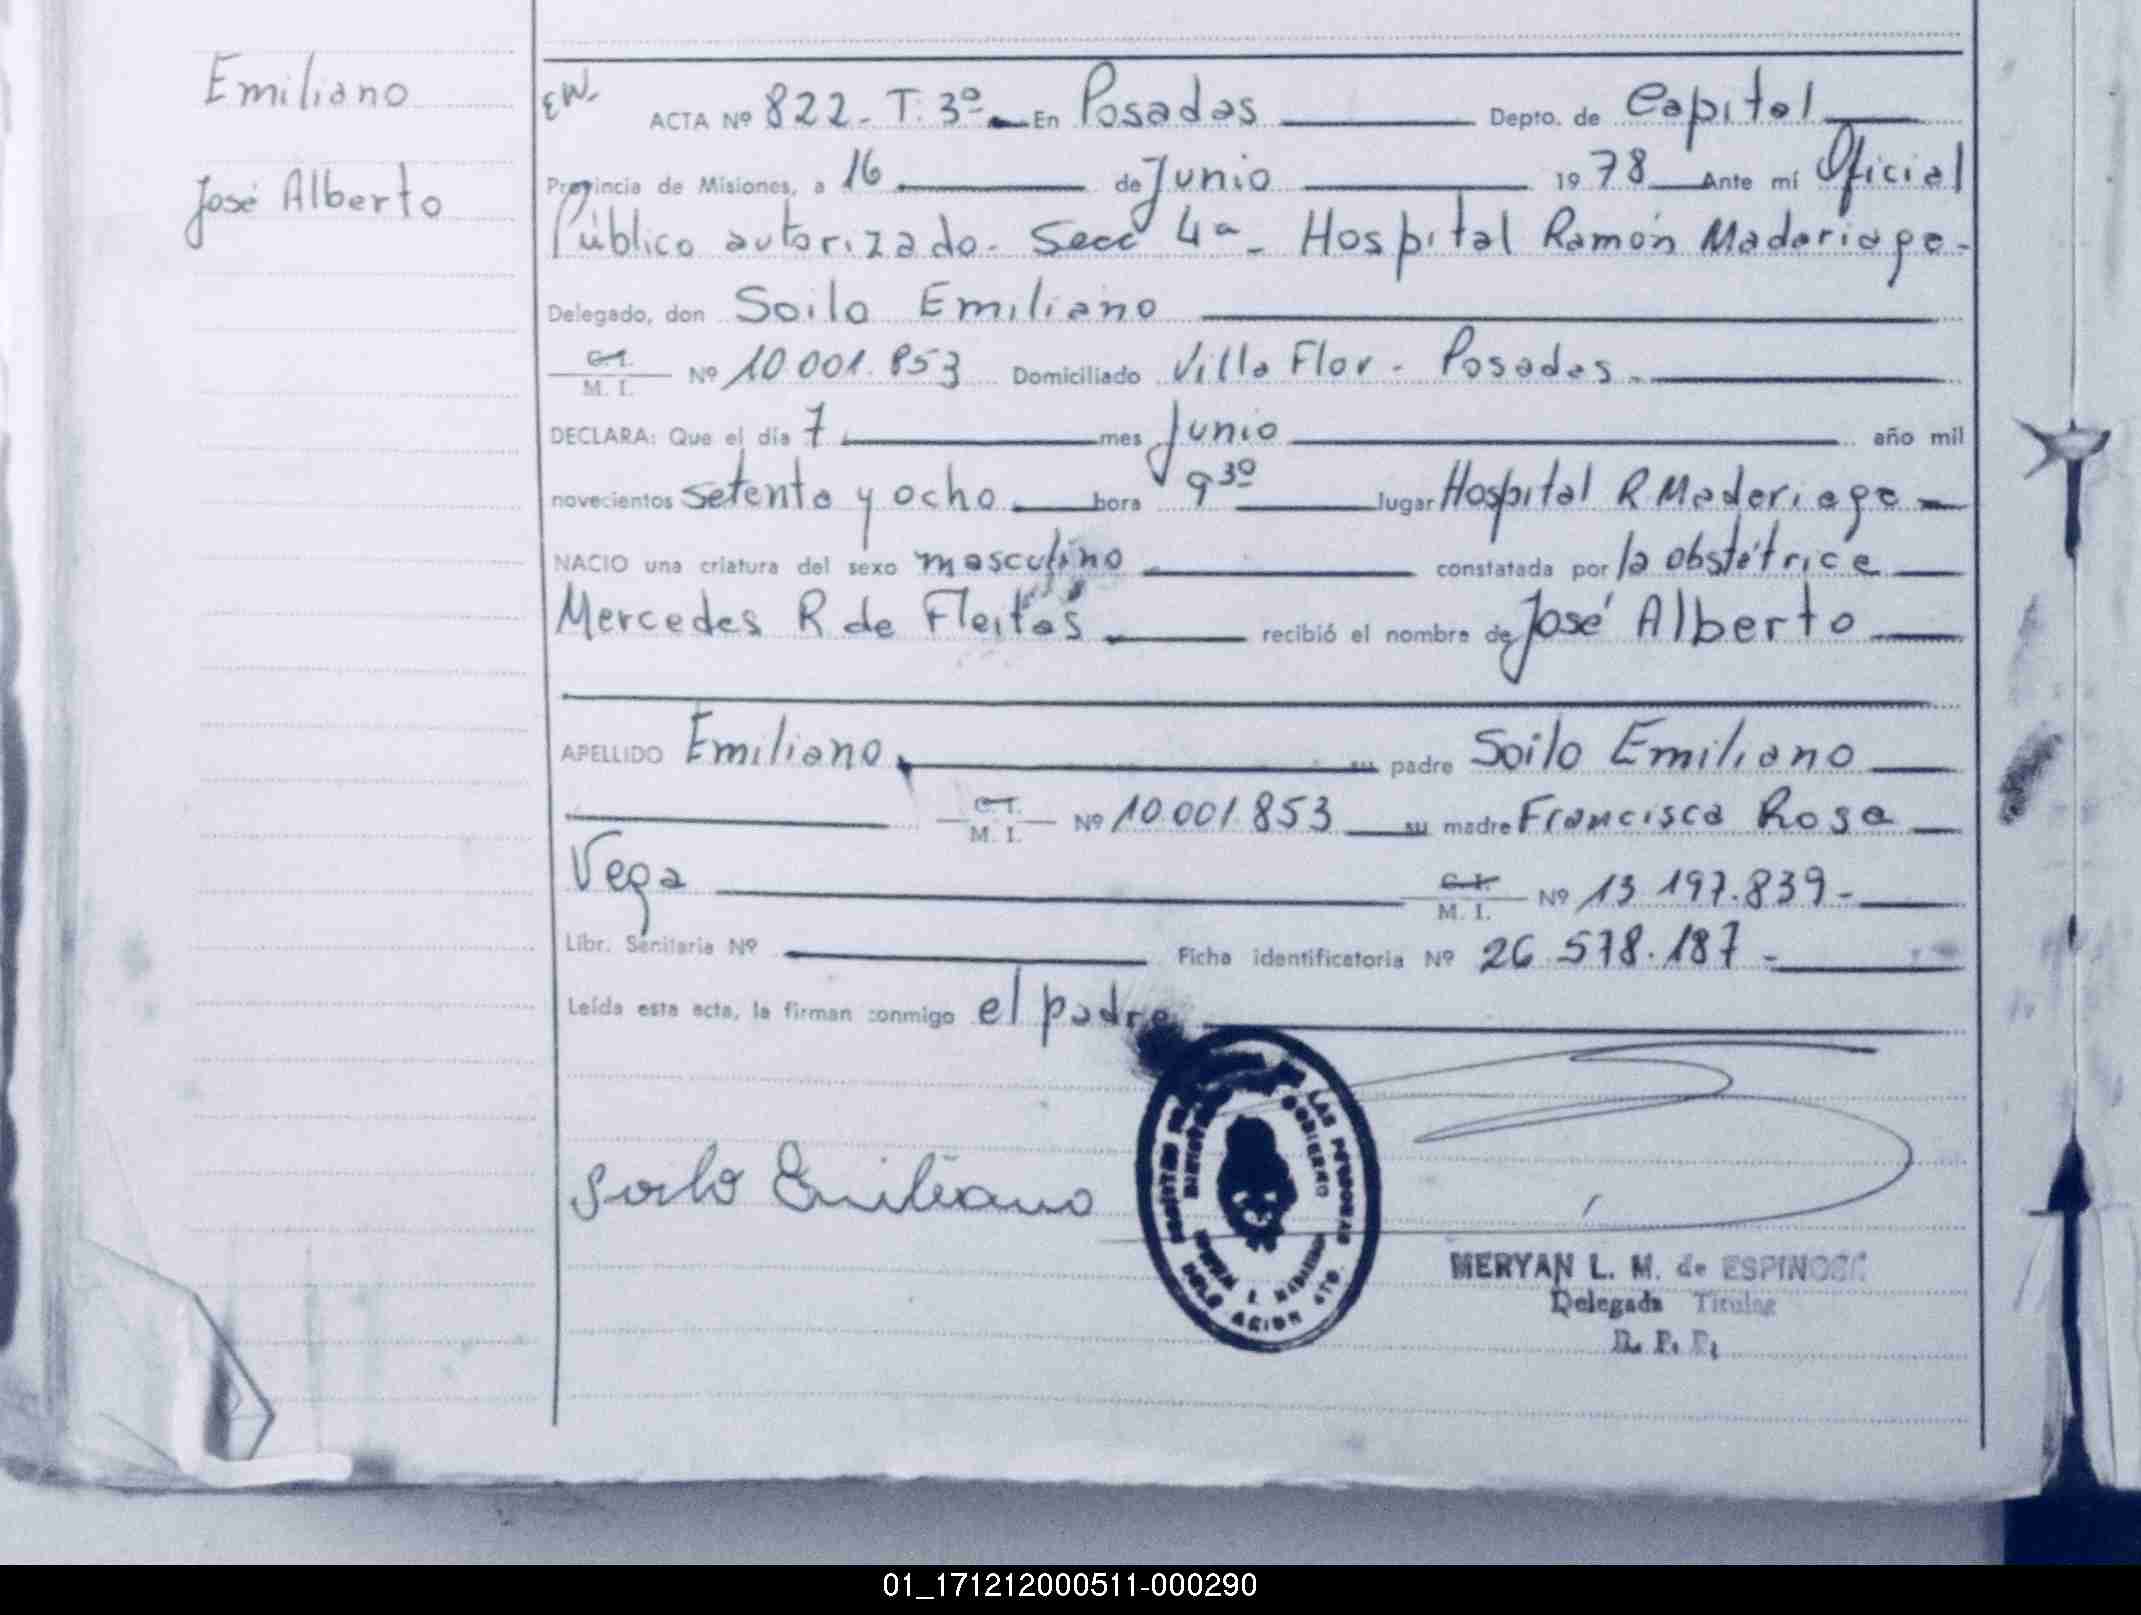 Emiliano
José Alberto
EW. ACTA Nº 822-T. 3º En Posadas Depto. de Capital
Provincia de Misiones, a 16 de Junio 1978 Ante mí Oficial
Público autorizado- Secc 4ª- Hospital Ramón Madariaga-
Delegado, don Soilo Emiliano
C.I.
M. I. Nº 10 001.853 Domiciliado Villa Flor - Posadas.
DECLARA: Que el día 7 mes Junio año mil
novecientos setenta y ocho hora 9 30 lugar Hospital R Madariaga
NACIO una criatura del sexo masculino constatada por la obstétrice
Mercedes R de Fleitas recibió el nombre de José Alberto
APELLIDO Emiliano su padre Soilo Emiliano
C.I.
M. I. Nº 10 001 853 su madre Francisca Rosa
Vega C.I.
M. I. Nº 13 197.839-
Libr. Sanitaria Nº Ficha identificatoria Nº 26 578.187-
Leída esta acta, la firman conmigo el padre
LAS PERSONAS
GOBIERNO
Soilo Emiliano
MERYAN L. M. de ESPINOSA
Delegada Titular
01_171212000511-000290